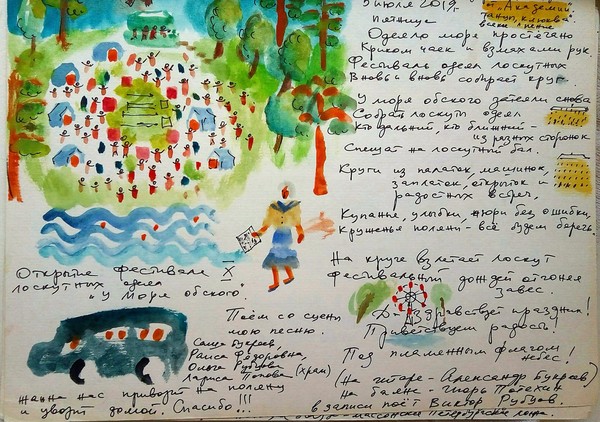 5 июля 2019г.
Пятница
"Академии
Танцы, клюква"
Одеяло моря простёгано
Криком чаек и взмахами рук.
Фестиваль одеял лоскутных
Вновь и вновь собирает круг.
У моря обского затеяли снова
Собрать лоскуты одеял
Кто дальний, кто ближний -
из разных сторонок
Спешат на лоскутный бал.
Круги из палаток, машинок,
заплаток, открыток и
радостных встреч,
Купанье, улыбки, жюри без ошибки,
Круженье поляни - всё будем беречь.
На круге взлетает лоскут
Фестивальный дождей отгоняя
Завес.
Да здравствует праздник!
Приветствуем радость!
Под пламенным флагом
небес!
(На гитаре - Александр Букреев)
На баяне - Игорь Потехин
в записи поёт Виктор Рубцов.
Открытие фестиваля X
лоскутных одеял
"У моря обского"
Поём со сцены
мою песню.
Саша Букреев,
Раиса Фёдоровна,
Ольга Рубцова
Лариса Попова (храм)
Жанна нас привозит на поляну
и увозит домой. Спасибо!!!